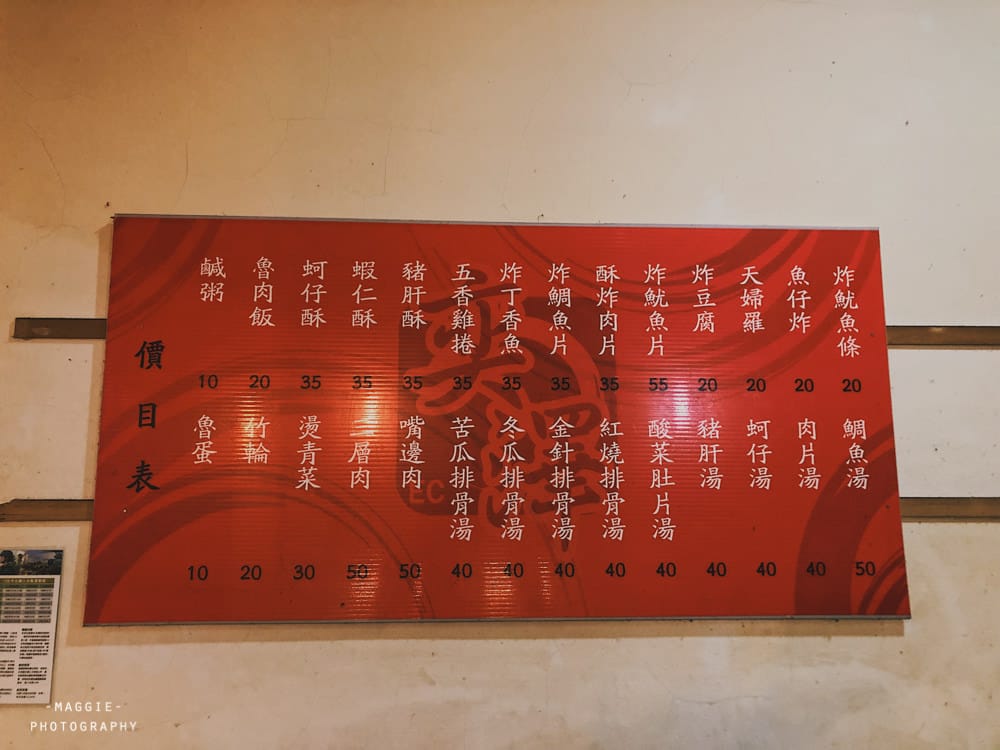 價目表
炸魷魚條 20
魚仔炸 20
天婦羅 20
炸豆腐 20
炸魷魚片 55
酥炸肉片 35
炸鯛魚片 35
炸丁香魚 35
五香雞捲 35
豬肝酥 35
蝦仁酥 35
蚵仔酥 35
魯肉飯 20
鹹粥 10
鯛魚湯 50
肉片湯 40
蚵仔湯 40
豬肝湯 40
酸菜肚片湯 40
紅燒排骨湯 40
金針排骨湯 40
冬瓜排骨湯 40
苦瓜排骨湯 40
嘴邊肉 50
三層肉 50
燙青菜 30
竹輪 20
魯蛋 10
EC
-MAGGIE-
PHOTOGRAPHY